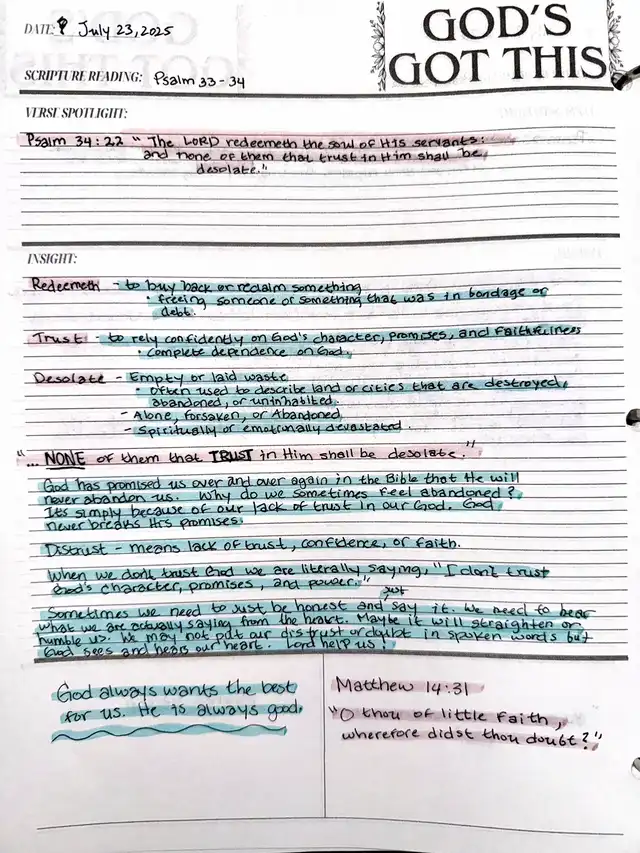 DATE: July 23, 2025
GOD'S
GOT THIS
SCRIPTURE READING: Psalm 33-34
VERSE SPOTLIGHT:
Psalm 34:22 "The LORD redeemeth the soul of His servants:
and none of them that trust in Him shall be
desolate."
INSIGHT:
Redeemeth - to buy back or reclaim something
• freeing someone or something that was in bondage or
debt.
Trust - to rely confidently on God's character, promises, and faithfulness
• Complete dependence on God.
Desolate - Empty or laid waste
• Often used to describe land or cities that are destroyed,
abandoned, or uninhabited.
- Alone, forsaken, or Abandoned
- Spiritually or emotionally devastated.
"... NONE of them that TRUST in Him shall be desolate."
God has promised us over and over again in the Bible that He will
never abandon us. Why do we sometimes feel abandoned?
Its simply because of our lack of trust in our God. God
never breaks His promises.
Distrust - means lack of trust, confidence, or faith.
When we don't trust God we are literally saying, "I don't trust
God's character, promises, and power."
just
Sometimes we need to just be honest and say it. We need to hear
what we are actually saying from the heart. Maybe it will straighten or
humble us. We may not put our distrust or doubt in spoken words but
God sees and hears our heart. Lord help us!
God always wants the best
for us. He is always good.
Matthew 14:31
"O thou of little faith,
wherefore didst thou doubt?"